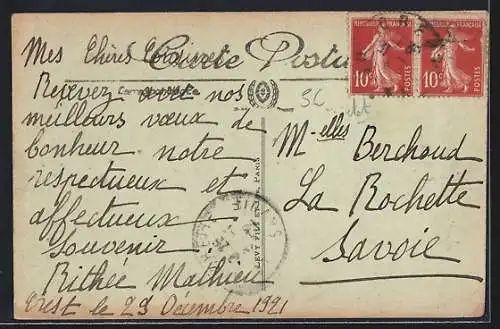 Carte Postale
Mes Chères Cousines
Recevez avec nos
meilleurs vœux de
bonheur notre
respectueux et
affectueux
souvenir
Mathieu
Brest le 29 Décembre 1921
Correspondance
LEVY FILS ET PARIS
REPUBLIQUE FRANÇAISE
10c
POSTES
REPUBLIQUE FRANÇAISE
10c
POSTES
M-elles Berchoud
La Rochette
Savoie